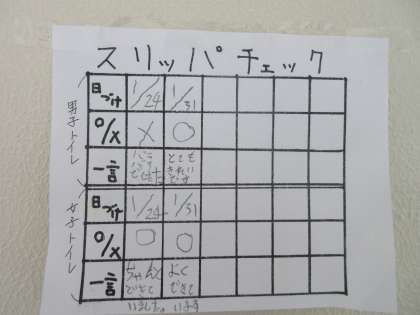 スリッパチェック
男子トイレ
日づけ 1/24 1/31
○/× × ○
一言 バラバラでした とてもきれいです
女子トイレ
日づけ 1/24 1/31
○/× ○ ○
一言 ちゃんとできていました。 よくできています